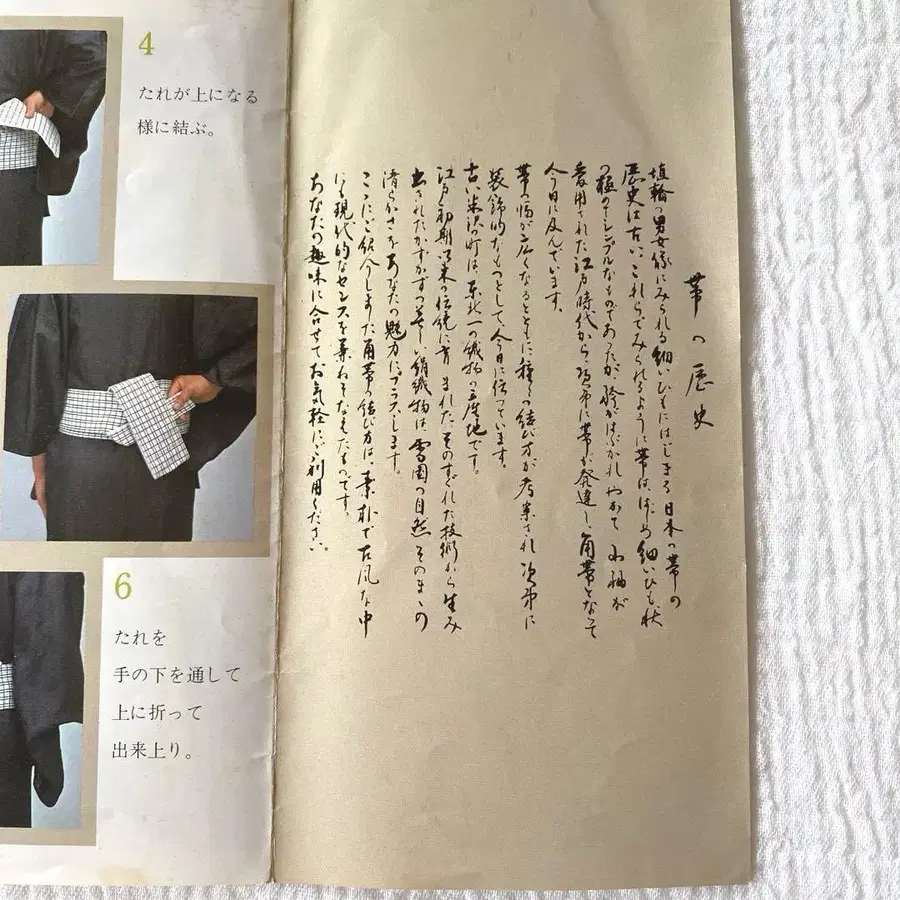 4
たれが上になる
様に結ぶ。
6
たれを
手の下を通して
上に折って
出来上り。
帯の歴史
埴輪の男女像にみられる細いひもにはじまる日本の帯の
歴史は古い。これらでみられるように帯は、はじめ細いひも状
の極めてシンプルなものであったが、袴がはぶかれ やがて 小袖が
愛用された江戸時代から次第に帯が発達し、角帯となって
今日に及んでいます。
帯の幅が広くなるとともに種々の結び方が考案され 次第に
装飾的なものとして、今日に伝っています。
古い米沢の町は、東北一の織物の産地です。
江戸初期以来の伝統に育まれた、そのすぐれた技術から生み
出されたかずかずの美しい絹織物は、雪国の自然そのままの
清らかさをあなたの魅力にプラスします。
ここにご紹介しました角帯の結び方は、素朴で古風な中
にも現代的なセンスを兼ねそなえたものです。
あなたの趣味に合せてお気軽にご利用ください。